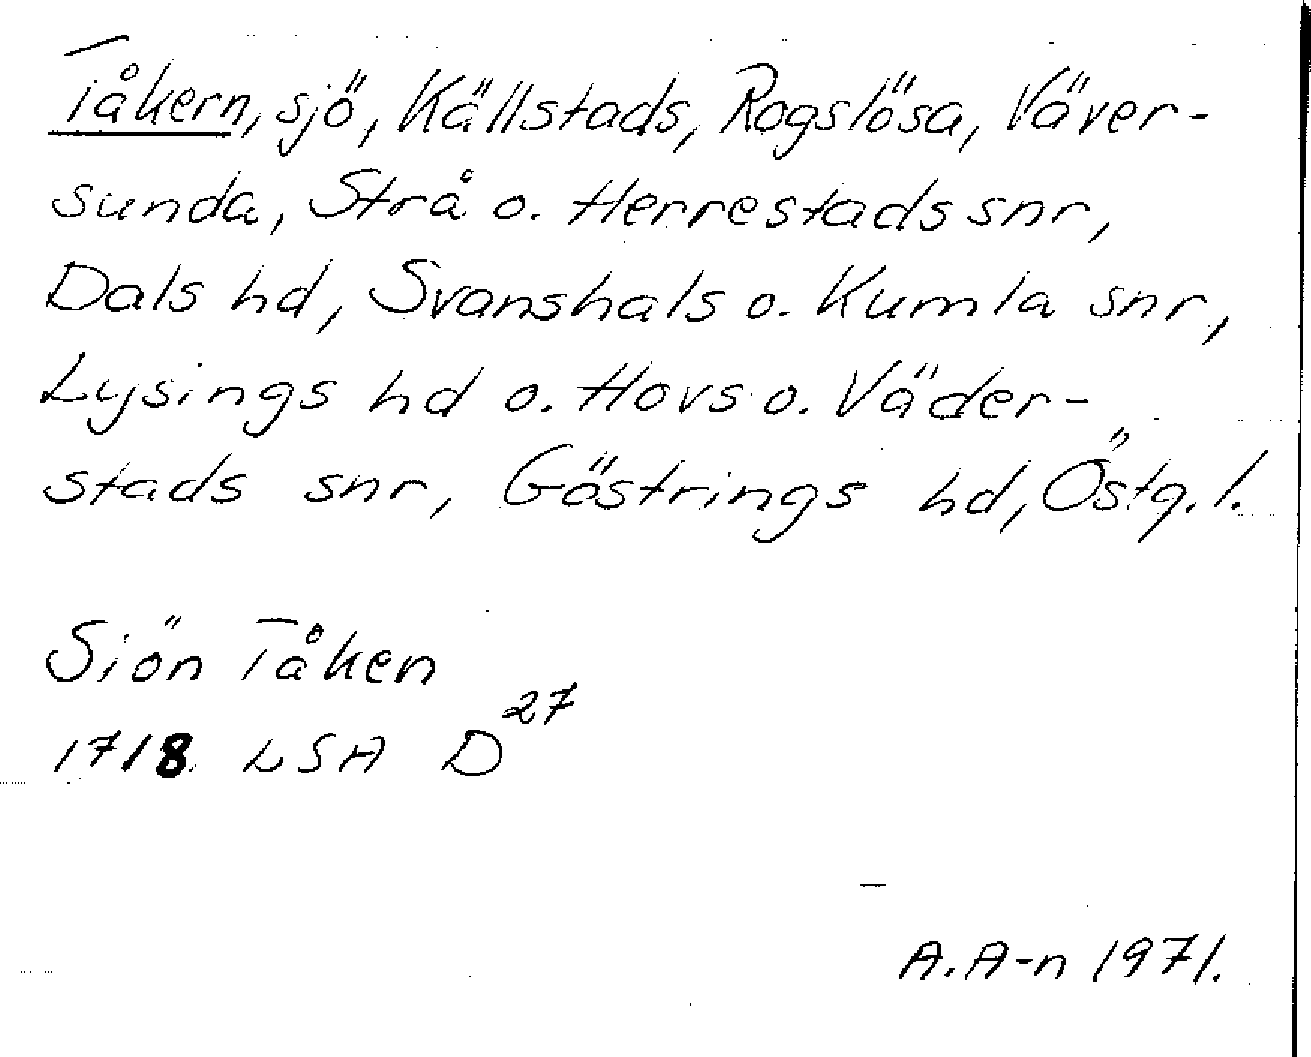 Tåkern, sjö, Källstads, Rogslösa, Väver-
sunda, Strå o. Herrestads snr,
Dals hd, Svanshals o. Kumla snr,
Lysings hd o. Hovs o. Väder-
stads snr, Göstrings hd, Östg. l.
Siön Tåken
1718 LSA D27
A. A-n 1971.